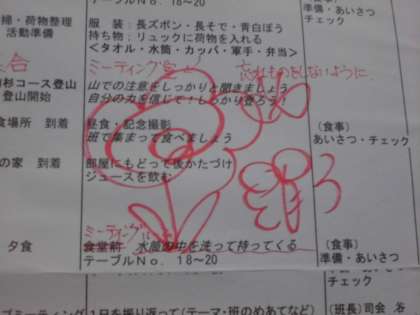 掃・荷物整理
活動準備
服 装：長ズボン・長そで・青白ぼう
持ち物；リュックに荷物を入れる
＜タオル・水筒・カッパ・軍手・弁当＞
準備・あいさつ
チェック
合
ミーティング室
忘れものをしないように.
杉コース登山
登山開始
山での注意をしっかりと聞きましょう
自分の力を信じて！しっかり登ろう！
食場所 到着
昼食・記念撮影
班で集まって食べましょう
（食事）
あいさつ・チェック
の家 到着
部屋にもどって後かたづけ
ジュースを飲む
ミーティング
夕食
食堂前 水筒の中を洗って持ってくる
テーブルＮｏ．１８～２０
（食事）
準備・あいさつ
チェック
ブミーティング
１日を振り返って（テーマ・班のめあてなど）
（班長）司会 谷